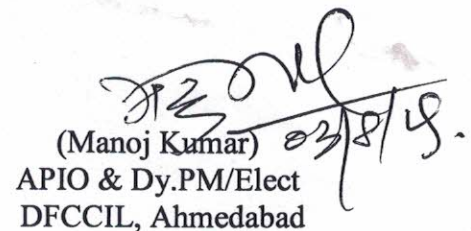 (Manoj Kumar)
APIO & Dy.PM/Elect
DFCCIL, Ahmedabad